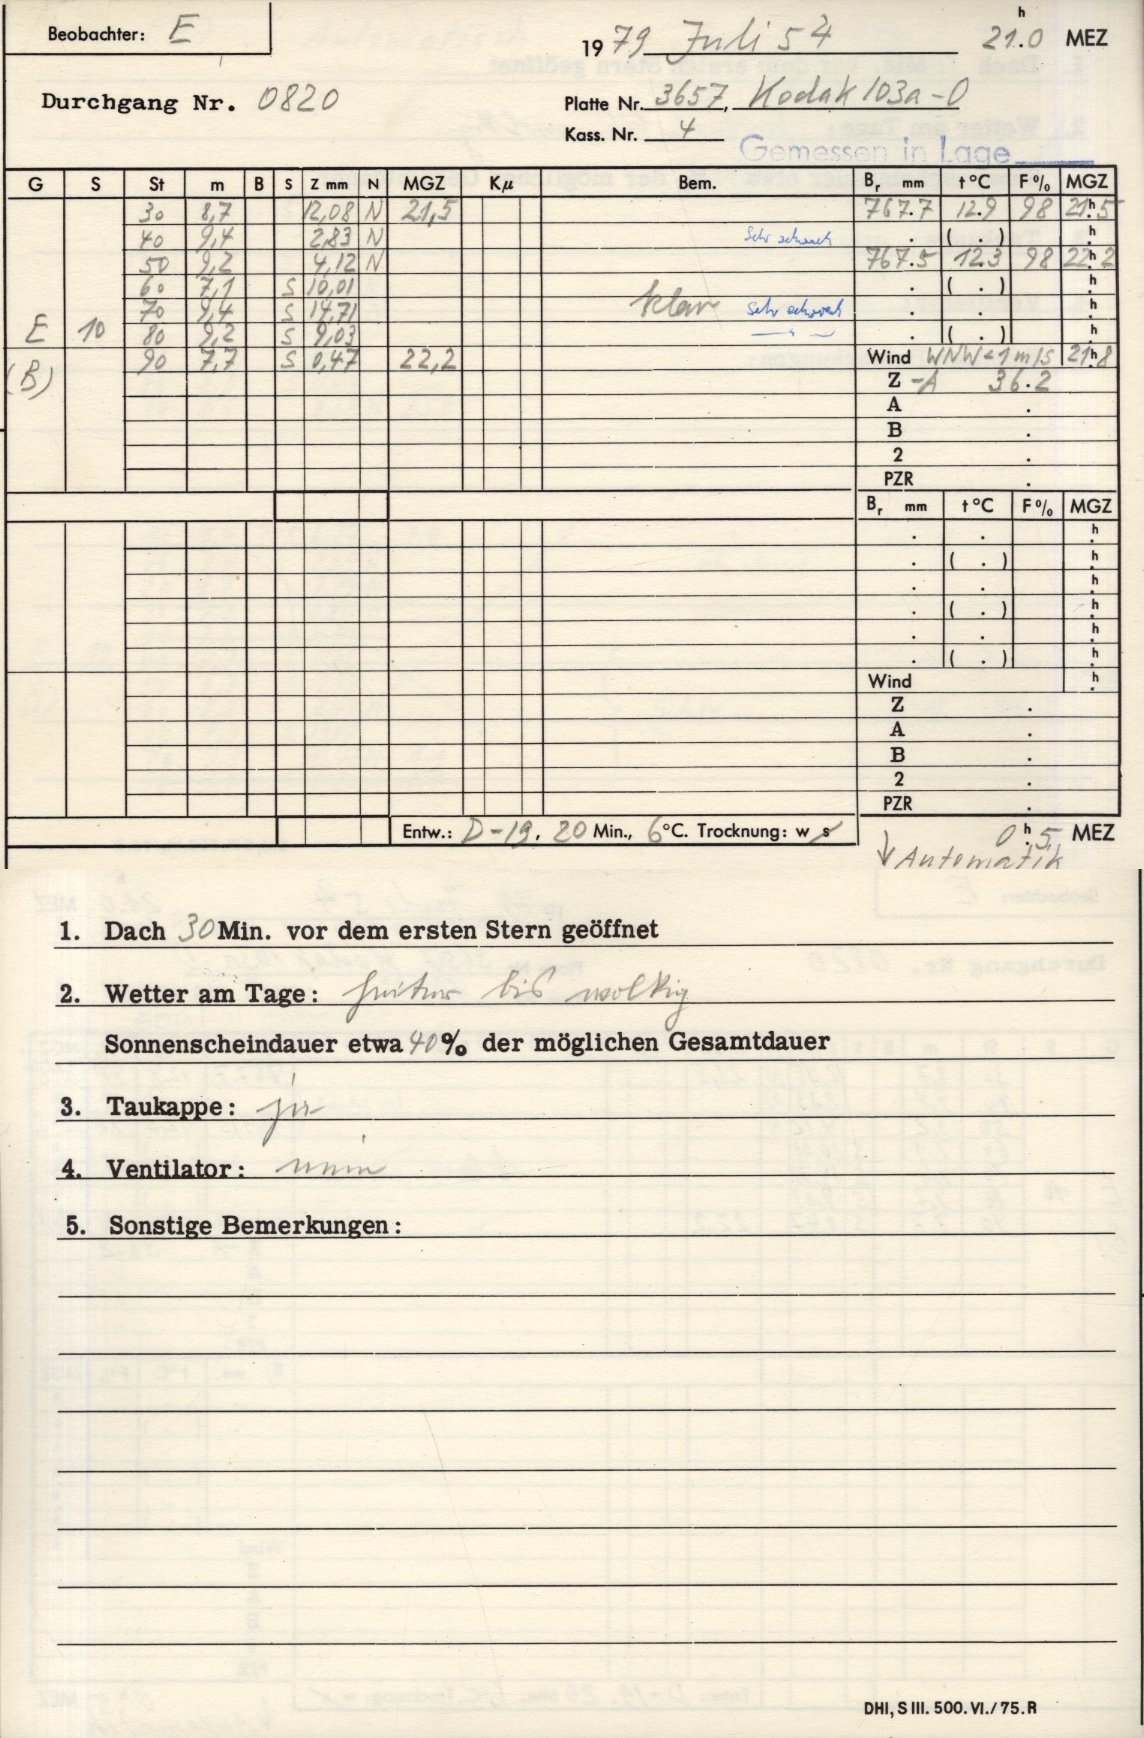 Beobachter: E
1979 Juli 5 21.h0 MEZ
Durchgang Nr. 0820
Platte Nr. 3657, Kodak 103a-O
Kass. Nr. 4
Gemessen in Lage
G S St m B S Z mm N MGZ Kμ Bem. Br mm t°C F% MGZ
30 8,7 12,08 N 21,5 767.7 12.9 98 21.h5
40 9,4 2,83 N sehr schwach . ( . ) h
50 9,2 4,12 N 767.5 12.3 98 22.h2
60 7,1 S 10,01 . ( . ) h
70 9,4 S 14,71 klar sehr schwach . . h
E 10 80 9,2 S 9,03 . ( . ) h
(B) 90 7,7 S 0,47 22,2 Wind WNW<1m/s 21.h8
Z -A 36.2
A .
B .
2 .
PZR .
Br mm t°C F% MGZ
. . h
. ( . ) h
. . h
. ( . ) h
. . h
. ( . ) h
Wind h
Z .
A .
B .
2 .
PZR .
Entw.: D-19, 20 Min., 6°C. Trocknung: w s 0.h5 MEZ
↓ Automatik
1. Dach 30 Min. vor dem ersten Stern geöffnet
2. Wetter am Tage: heiter bis wolkig
Sonnenscheindauer etwa 40% der möglichen Gesamtdauer
3. Taukappe: ja
4. Ventilator: nein
5. Sonstige Bemerkungen:
DHI, S III. 500. VI./75. R